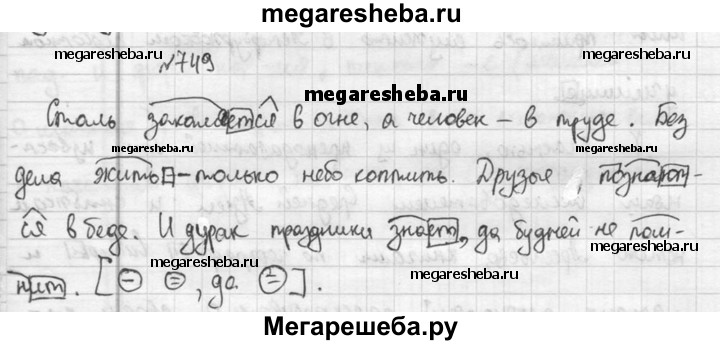 megaresheba.ru
№749
Сталь закаляется в огне, а человек – в труде. Без
megaresheba.ru
megaresheba.ru
дела жить – только небо коптить. Друзья познают-
megaresheba.ru
ся в беде. И дурак праздники знает, да будней не пом-
megaresheba.ru
megaresheba.ru
нит. [ – = , да = ].
Мегарешеба.ру